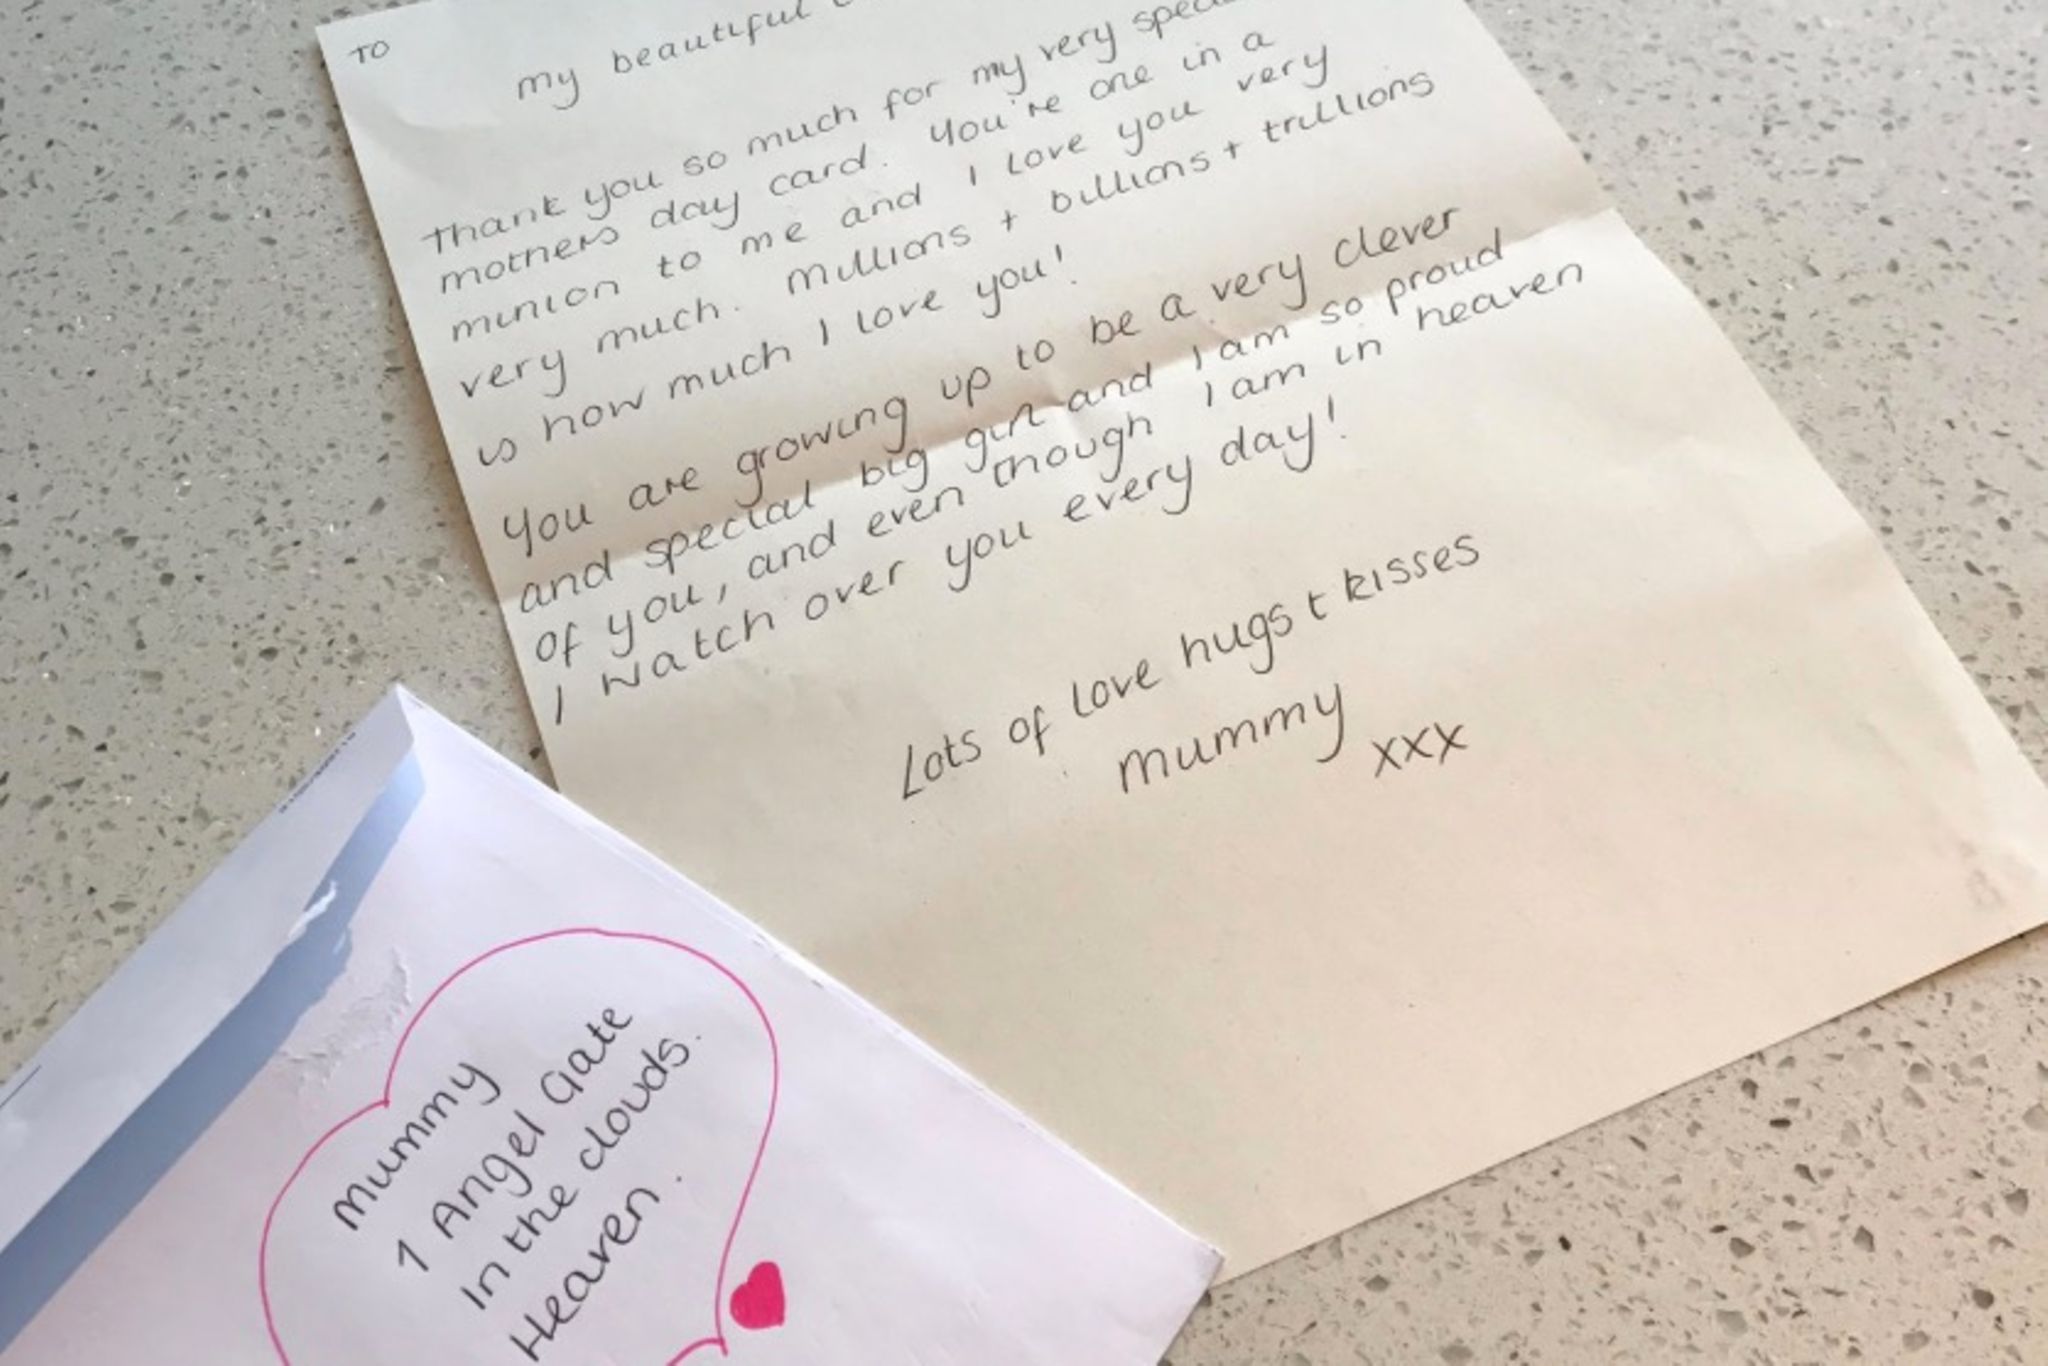 TO
my beautiful
Thank you so much for my very
mothers day card. You're one in a
minion to me and I love you very
very much. Millions + billions + trillions
is how much I love you!
You are growing up to be a very clever
and special big girl and I am so proud
of you, and even though I am in heaven
I watch over you every day!
Lots of love hugs + kisses
Mummy
xxx
Mummy
1 Angel Gate
In the clouds.
Heaven.